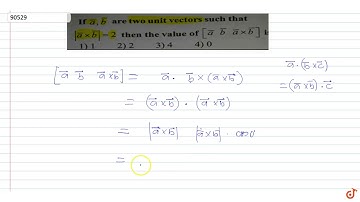 90529
If a̅, b̅ are two unit vectors such that
|a̅×b̅|=2 then the value of [a̅ b̅ a̅×b̅]
1) 1 2) 2 3) 4 4) 0
[a⃗ b⃗ a⃗×b⃗] = a⃗ · b⃗ × (a⃗×b⃗)
a⃗·(b⃗×c⃗)
= (a⃗×b⃗) · (a⃗×b⃗)
= (a⃗×b⃗)·c⃗
= |a⃗×b⃗| |a⃗×b⃗| · cos0
=